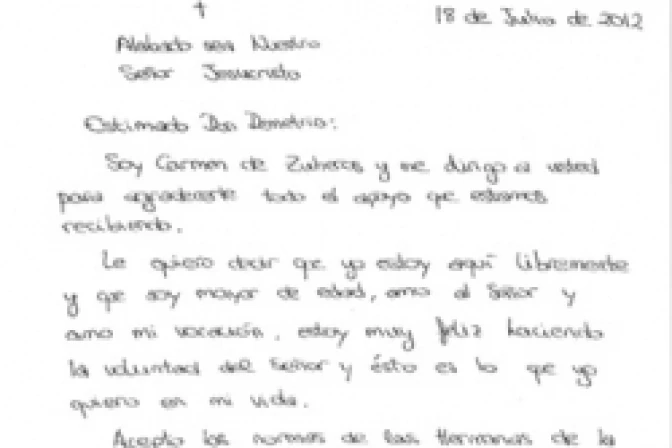 †
18 de Julio de 2012
Alabado sea Nuestro
Señor Jesucristo
Estimado Don Demetrio:
Soy Carmen de Zuheros y me dirijo a usted
para agradecerle todo el apoyo que estamos
recibiendo.
Le quiero decir que yo estoy aquí libremente
y que soy mayor de edad, amo al Señor y
amo mi vocación, estoy muy feliz haciendo
la voluntad del Señor y ésto es lo que yo
quiero en mi vida.
Acepto las normas de las Hermanas de la